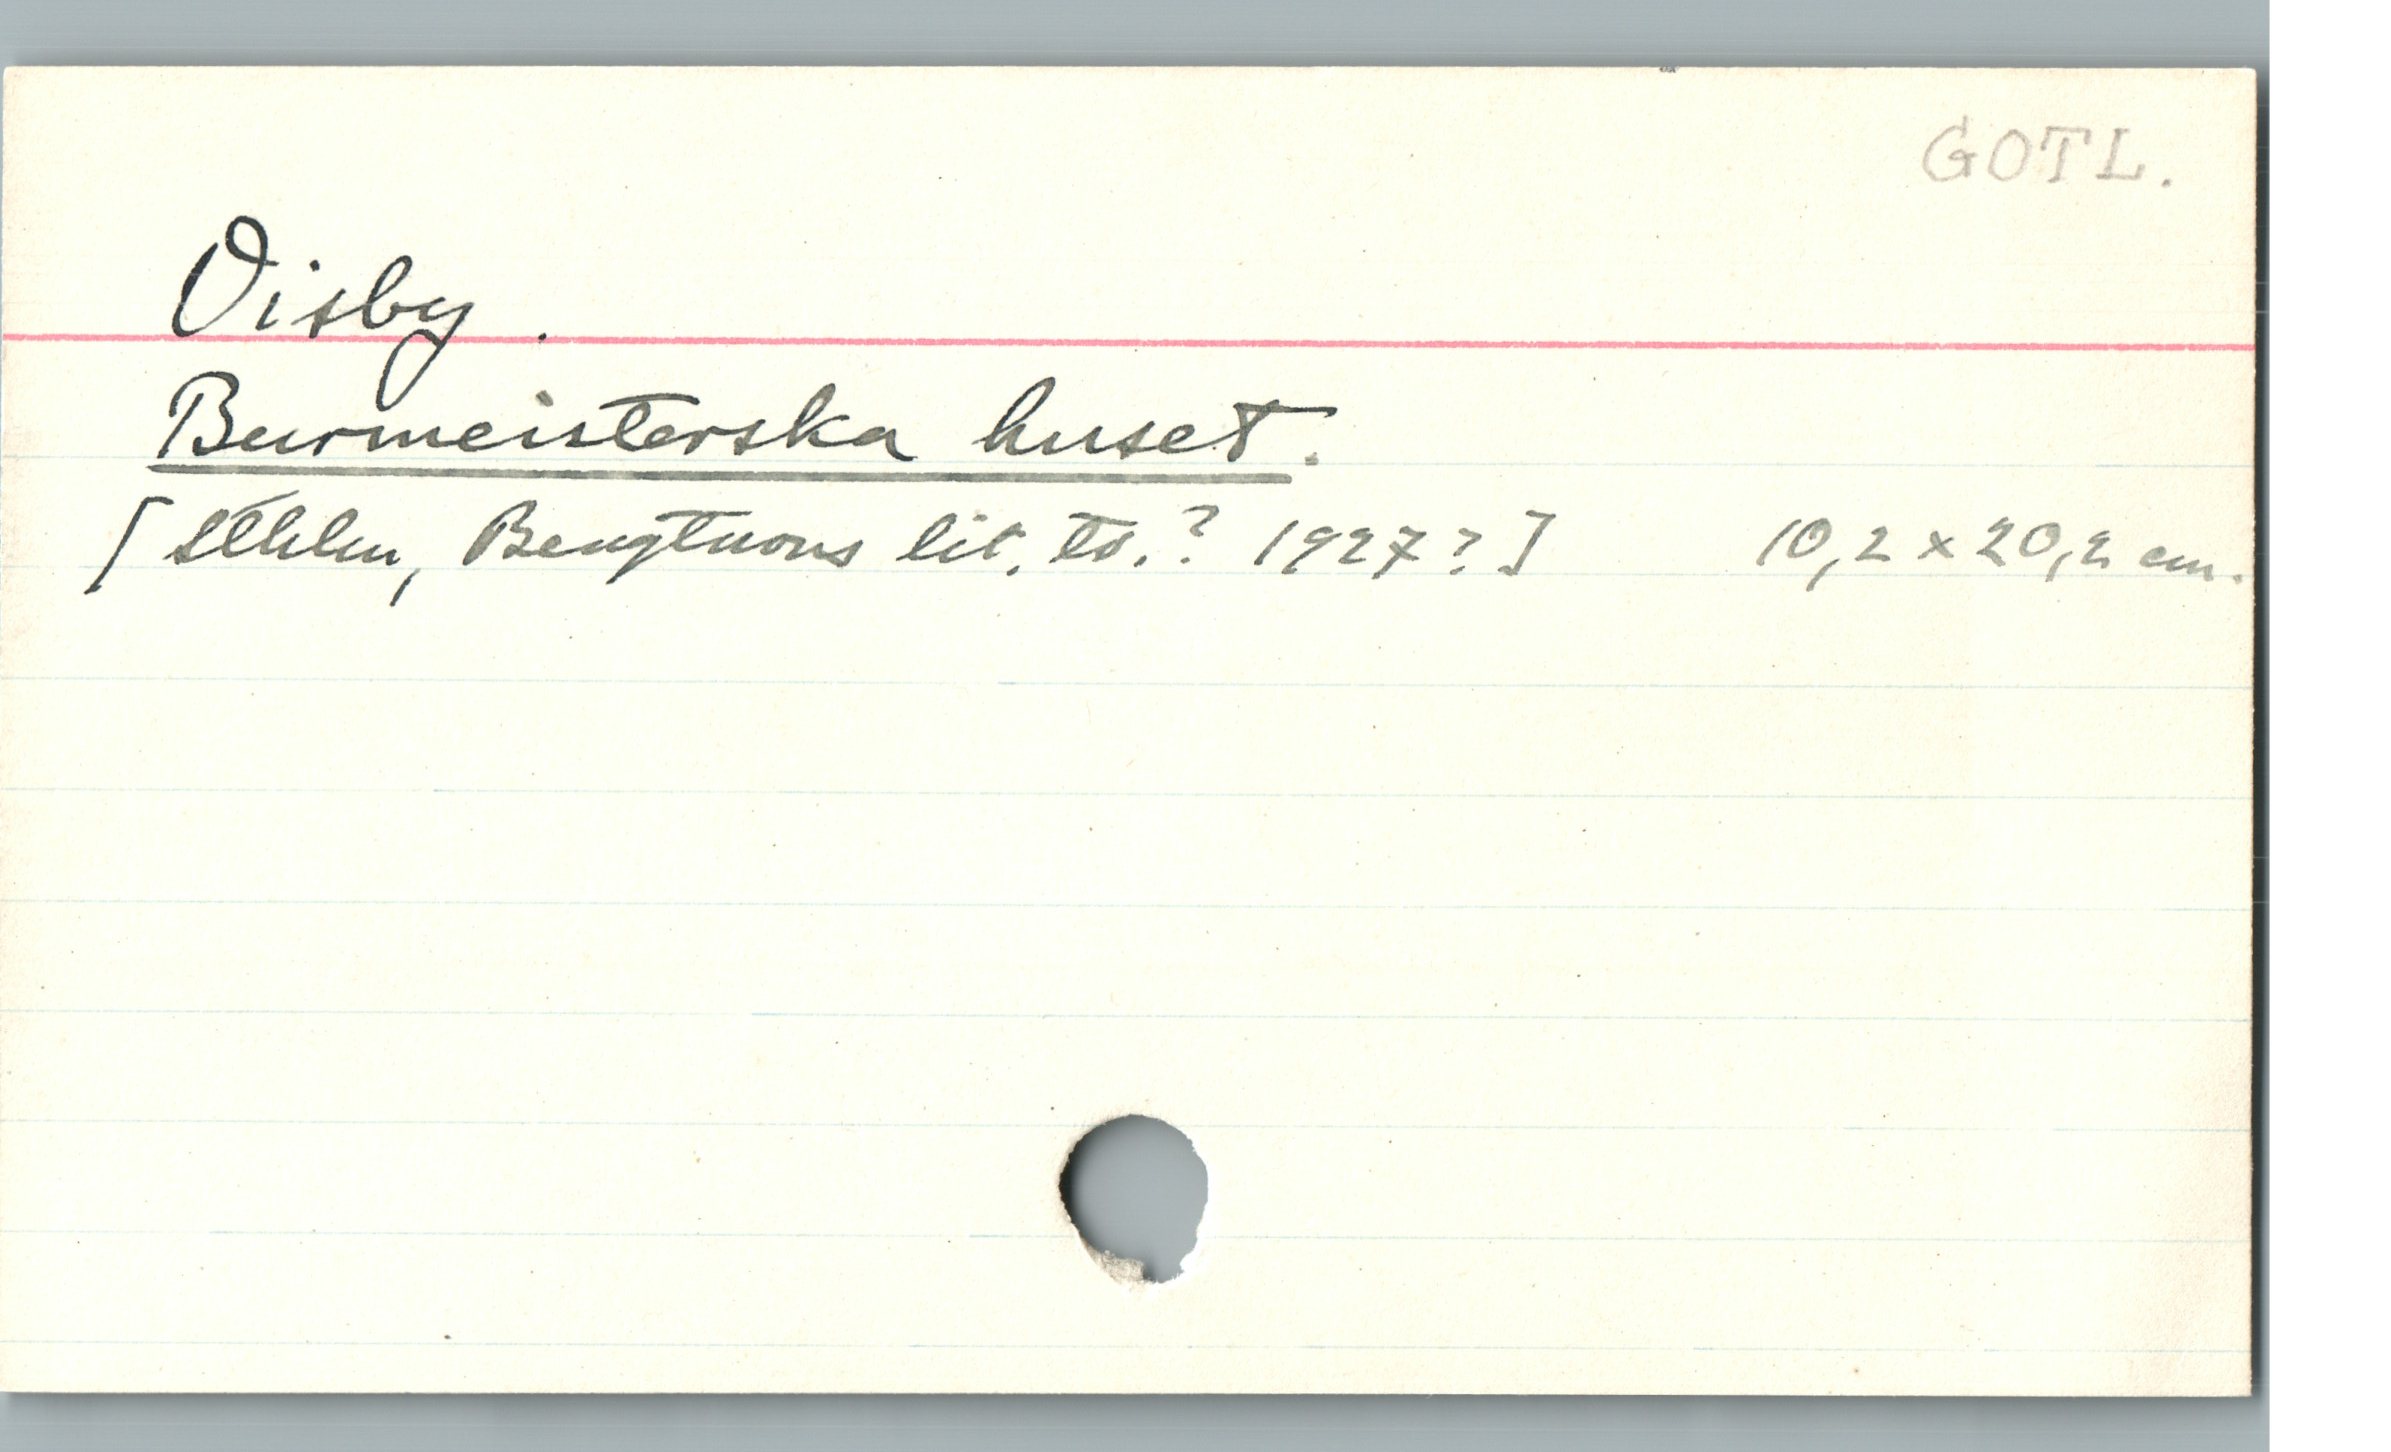 GOTL.
Visby.
Burmeisterska huset.
[Sthlm, Bengtsons lit. to.? 1927?] 10,2 x 20,2 cm.